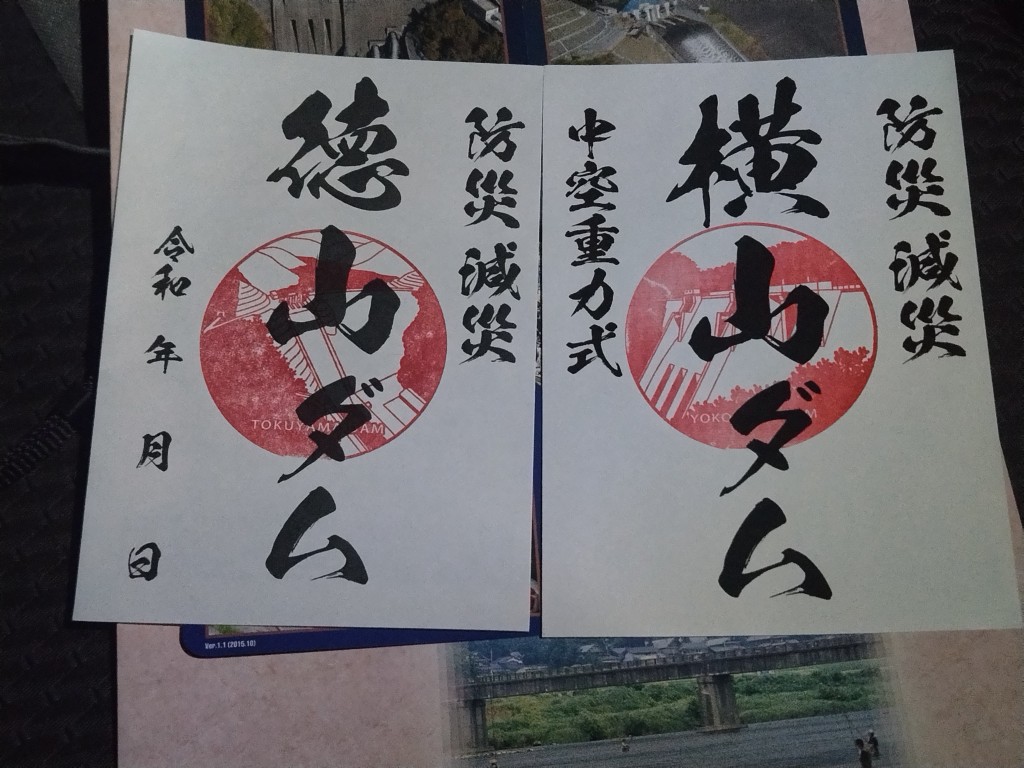 防災減災
徳山ダム
TOKUYAMA DAM
令和 年 月 日
防災減災
横山ダム
中空重力式
Ver.1.1 (2015.10)